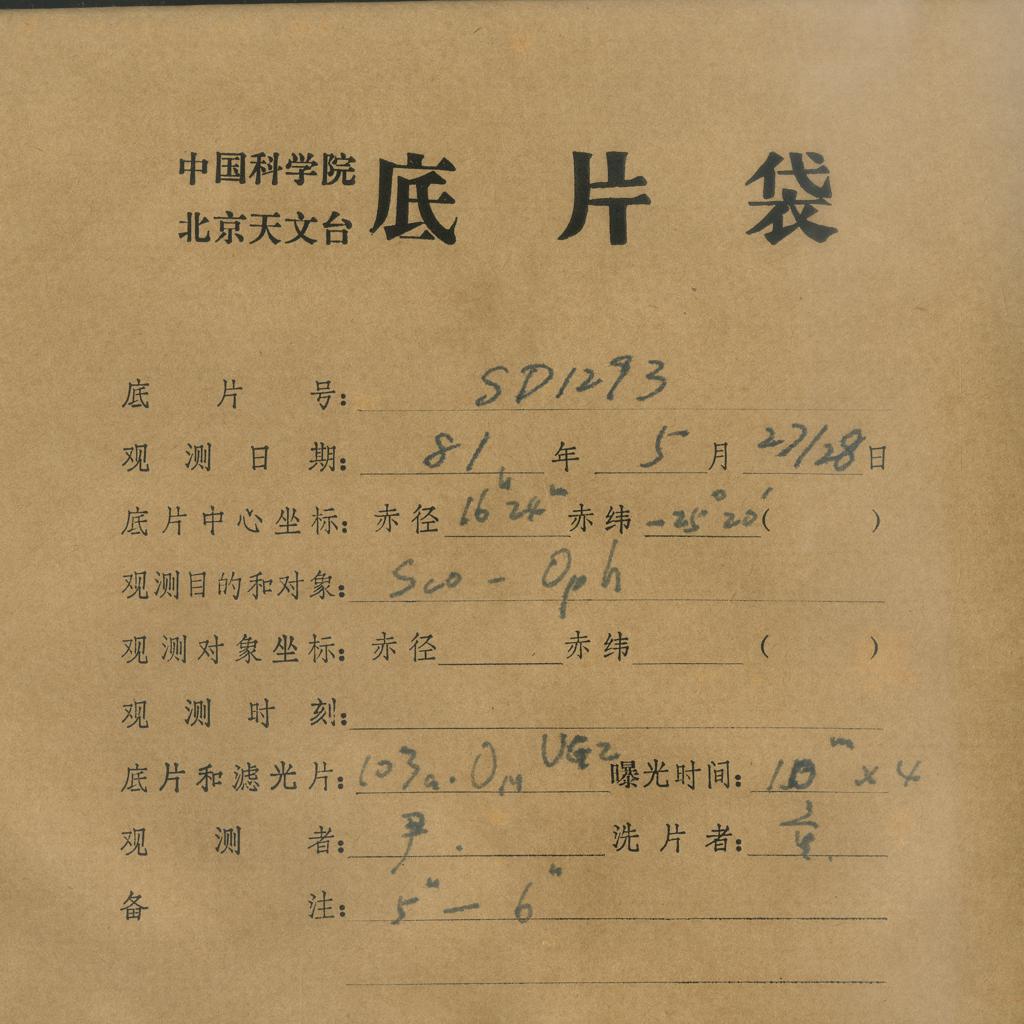 中国科学院
北京天文台
底片袋
底片号：SD1293
观测日期：81年5月27/28日
底片中心坐标：赤径16ʰ24ᵐ赤纬-25°20′( )
观测目的和对象：Sco - Oph
观测对象坐标：赤径 赤纬 ( )
观测时刻：
底片和滤光片：103a. O UG2 曝光时间：10ᵐ×4
观测者：尹. 洗片者：
备注：5" — 6"